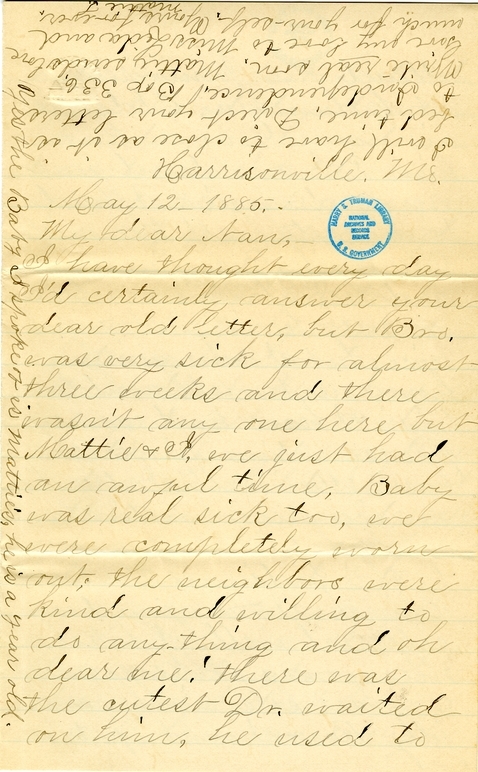 Harrisonville. Mo.
May 12 - 1885.
My dear Nan,
I have thought every day
I'd certainly answer your
dear old letter, but Bro.
was very sick for almost
three weeks and there
wasn't any one here but
Mattie & I, we just had
an awful time, Baby
was real sick too, we
were completely worn
out; the neighbors were
kind and willing to
do any-thing and oh
dear me! there was
the cutest Dr. waited
on him, he used to
I will have to close as it is
bed time, Direct your letters
to Independence, Box 336,
Write real soon, Mattie sends love
Give my love to Miss and
much for your-self. Yours forever
Mattie
Yes the Baby I spoke of is Mattie's, he is a year old.
HARRY S. TRUMAN LIBRARY
NATIONAL
ARCHIVES AND
RECORDS
SERVICE
U. S. GOVERNMENT